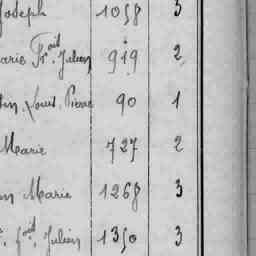 Joseph 1058 3
arie Fr. Julien 919 2
Pierre 90 1
Marie 727 2
Marie 1268 3
Julien 1350 3